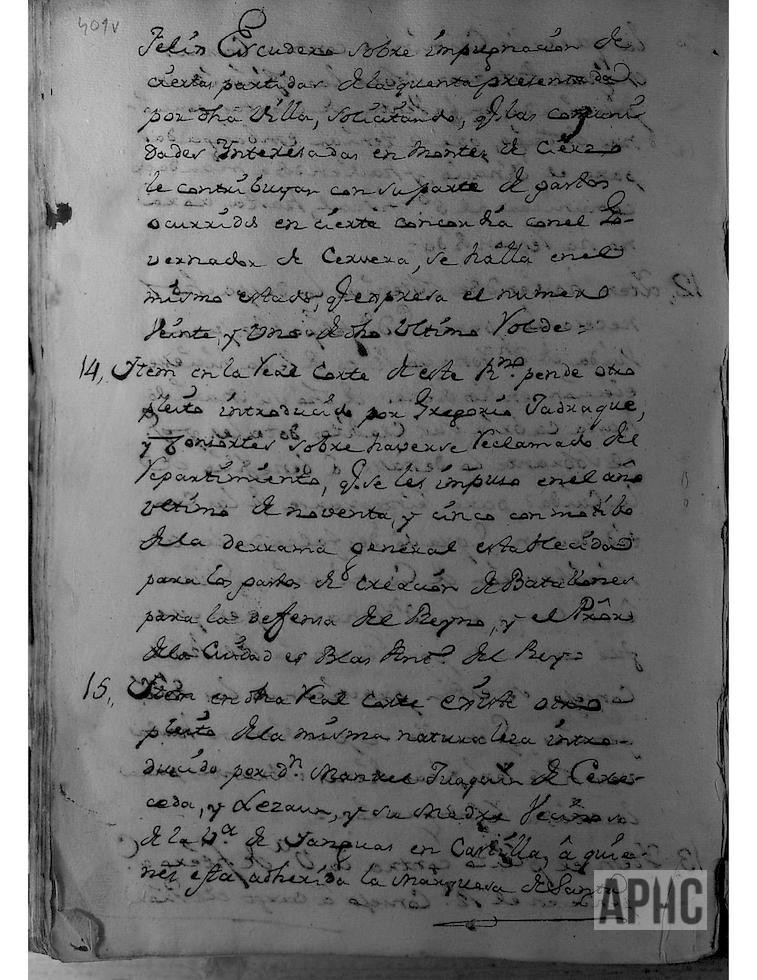 409v
Felix Escudero sobre impugnacion de
ciertas partidas de la quenta presentada
por dha Villa, solicitando, q.e las comuni
dades Interesadas en Montes de Cierzo
le contribuyan con su parte de gastos
ocurridos en cierta concordia con el Go-
vernador de Cervera, se halla en el
mismo estado, q.e expresa el numero
Veinte, y Uno de dho Ultimo Volde=
14, Item en la Real Corte de este R.no pende otro
pleito introducido por Gregorio Jadraque,
y Consortes sobre haverse reclamado del
Repartimiento, q.e se les impuso en el año
ultimo de noventa, y cinco con motibo
de la derrama general establecida
para los gastos de creacion de Batallones
para la defensa del Reyno, y el Pror
de la Ciudad es Blas Ant.o del Rey=
15, Item en dha Real Corte existe otro
pleito de la misma naturaleza intro-
ducido por d.n Manuel Juaquin de Cere-
ceda, y Lezaun, y su Madre Vecinos
de la V.a de Yanguas en Castilla, â quie-
nes esta adherida la Marquesa de Sant
APHC